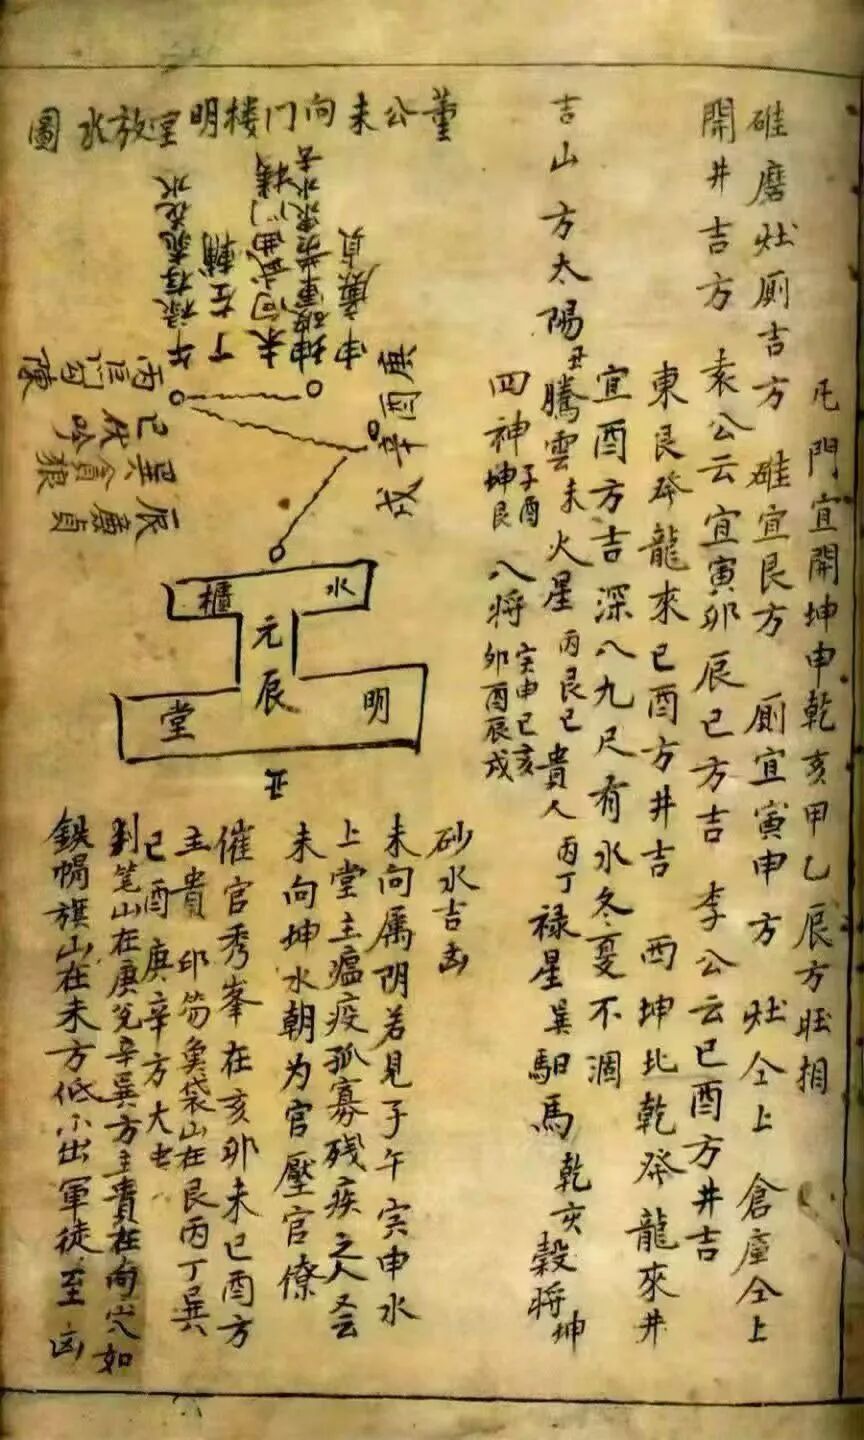 凡門宜開坤申乾亥甲乙辰方旺相
碓磨灶厠吉方 碓宜艮方 厠宜寅申方 灶仝上 倉庫仝上
開井吉方 袁公云宜寅卯辰巳方吉 李公云巳酉方井吉
東艮癸龍來巳酉方井吉 西坤北乾癸龍來井
宜酉方吉深八九尺有水冬夏不涸
吉山方太陽丑騰雲未火星丙艮巳貴人丙丁禄星巽馹馬乾亥穀將坤
四神子酉坤艮八将寅申巳亥卯酉辰戌
董公未向门楼明堂放水圖
申廉貞
丁左輔
庚酉辛戌
巳伏吟
巽貪狼
辰廉貞
水櫃
元辰
明堂
丑
砂水吉凶
未向属阴若見子午寅申水
上堂主瘟疫孤寡残疾之人又云
未向坤水朝为官壓官僚
催官秀峯在亥卯未巳酉方
主貴 印笏魚袋山在艮丙丁巽
巳酉庚辛方大吉
判笔山在庚兌辛巽方主貴在向穴如
鉄帽旗山在未方低小出軍徒至凶